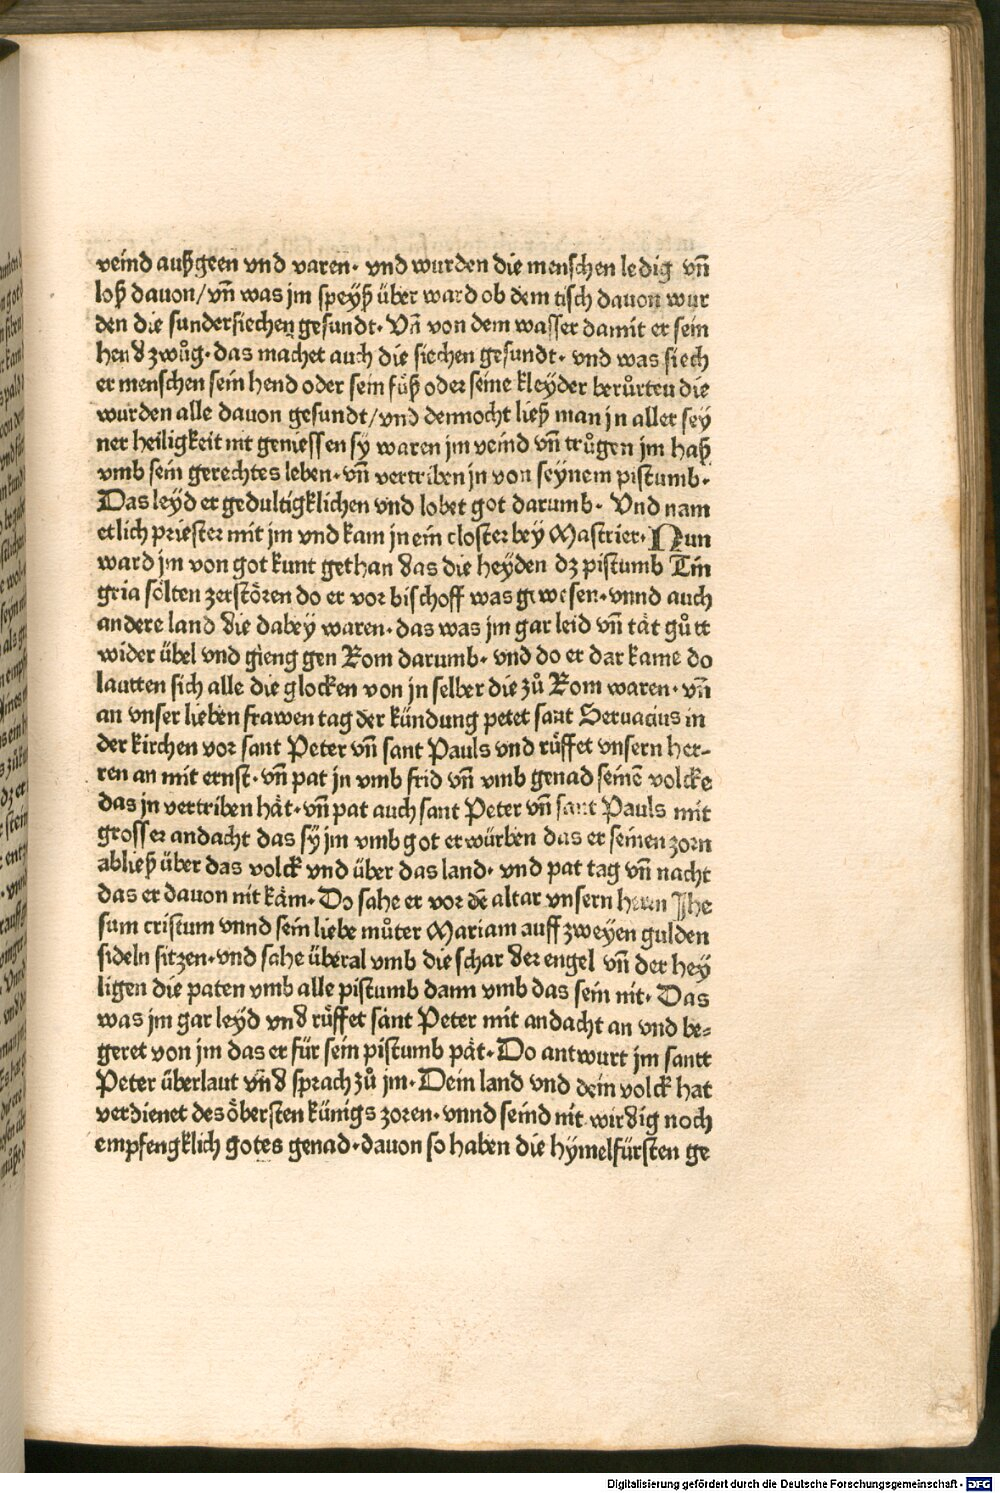 veind außgeen vnd varen· vnd wurden die menschen ledig vn̄
loß dauon/vn̄ was jm speyß über ward ob dem tisch dauon wur
den die sundersiechen gesundt· Vn̄ von dem wasser damit er sein
hend zwůg· das machet auch die siechen gesundt· vnd was siech
er menschen sein hend oder sein fůß oder seine kleyder berůrten die
wurden alle dauon gesundt/vnd dennocht ließ man jn aller sey
ner heiligkeit nit geniessen sy waren jm veind vn̄ trůgen jm haß
vmb sein gerechtes leben· vn̄ vertriben jn von seynem pistumb·
Das leyd er gedultigklichen vnd lobet got darumb· Vnd nam
etlich priester mit jm vnd kam jn ein closter bey Mastrier· Nun
ward jm von got kunt gethan das die heyden dz pistumb Tin
gria sölten zerstören do er vor bischoff was gewesen· vnnd auch
andere land die dabey waren· das was jm gar leid vn̄ tät gůtt
wider übel vnd gieng gen Rom darumb· vnd do er dar kame do
lautten sich alle die glocken von jn selber die zů Rom waren· vn̄
an vnser lieben frawen tag der kündung petet sant Seruacius in
der kirchen vor sant Peter vn̄ sant Pauls vnd růffet vnsern her-
ren an mit ernst· vn̄ pat jn vmb frid vn̄ vmb genad seinē volcke
das jn vertriben hät· vn̄ pat auch sant Peter vn̄ sant Pauls mit
grosser andacht das sy jm vmb got erwürben das er seinen zorn
abließ über das volck vnd über das land· vnd pat tag vn̄ nacht
das er dauon nit käm· Do sahe er vor dē altar vnsern herrn Jhe
sum cristum vnnd sein liebe můter Mariam auff zweyen gulden
sideln sitzen· vnd sahe überal vmb die schar der engel vn̄ der hey
ligen die paten vmb alle pistumb dann vmb das sein nit· Das
was jm gar leyd vnd růffet sant Peter mit andacht an vnd be-
geret von jm das er für sein pistumb pät· Do antwurt jm santt
Peter überlaut vn̄d sprach zů jm· Dein land vnd dein volck hat
verdienet des öbersten künigs zoren· vnnd seind nit wirdig noch
empfengklich gotes genad· dauon so haben die hymelfürsten ge
Digitalisierung gefördert durch die Deutsche Forschungsgemeinschaft - DFG